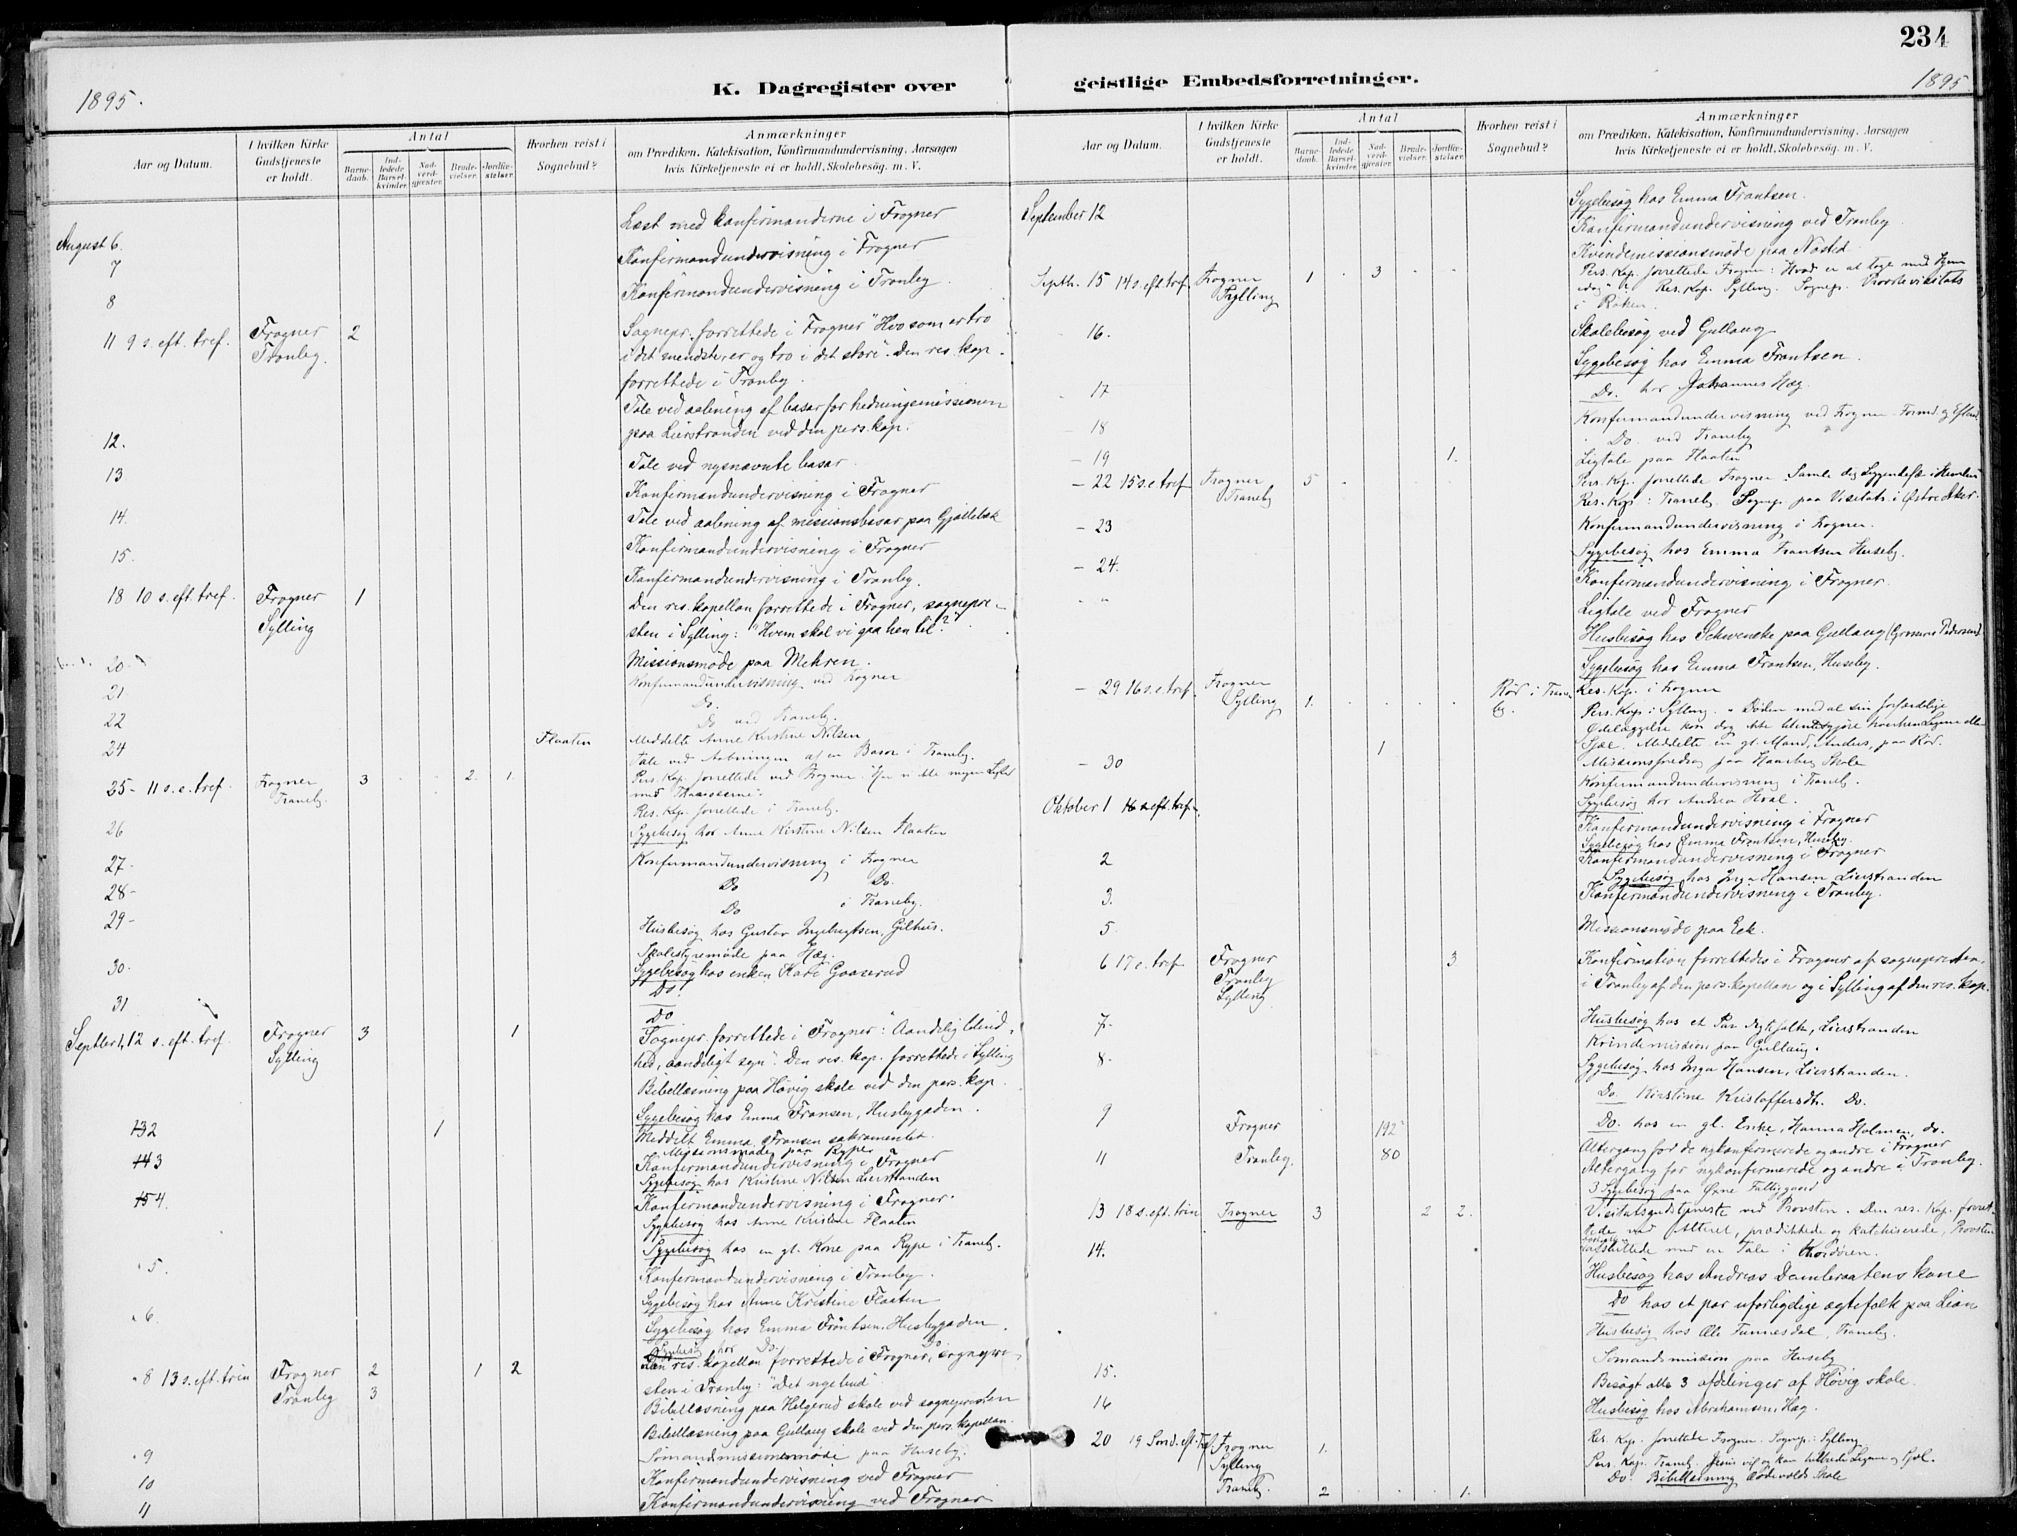 234
1895.
K. Dagregister over geistlige Embedsforretninger.
1895
Aar og Datum.
I hvilken Kirke Gudstjeneste er holdt.
Antal
Barnedaab.
Indledede Barselkvinder.
Nadverdgjester.
Brudevielser.
Jordfæstelser.
Hvorhen reist i Sognebud?
Anmærkninger
om Prædiken, Katekisation, Konfirmandundervisning, Aarsagen
hvis Kirketjeneste ei er holdt, Skolebesøg. m. V.
August 6. Læst med konfirmanderne i Frogner
7 Konfirmandundervisning i Frogner
8 Konfirmandundervisning i Tranby.
11 9 s. eft. tref. Frogner 2 Sognepr. forrettede i Frogner "Hvo som er tro
Tranby. i det mindste, er og tro i det store". Den res. kap.
forrettede i Tranby.
12. Tale ved aabning af basar for hedningemissionen
paa Lierstranden ved den pers. kap.
13 Tale ved nysnævnte basar.
14. Konfirmandundervisning i Frogner
Tale ved aabning af missionsbasar paa Gjellebæk
15. Konfirmandundervisning i Frogner
Konfirmandundervisning i Tranby.
18 10 s. eft. tref. Frogner 1 Den res. kapellan forrettede i Frogner, sognepre-
Sylling sten i Sylling: "Hvem skal vi gaa hen til?"
20 Missionsmøde paa Mehren.
21 Konfirmandundervisning ved Frogner
22 Do.
Do ved Tranby.
24 Flaaten Meddelte Anne Kirstine Nilsen
Tale ved Aabningen af en Basar i Tranby.
25- 11 s. e. tref. Frogner 3 2. 1. Pers. Kap. forrettede ved Frogner.
Tranby.
Res. Kap. forrettede i Tranby.
26 Sygebesøg hos Anne Kirstine Nilsen Flaaten
27- Konfirmandundervisning i Frogner
28- Do Do.
29- Do i Tranby.
Husbesøg hos Gustav Ingebrigtsen, Gilhus.
30. Skolestyremøde paa Hæg.
Sygebesøg hos enken Kari Gaaserud
31 Do.
Do
Septbr 1, 12 s. eft. tref. Frogner 3 1 Sognepr. forrettede i Frogner: "Aandelig blind-
Sylling hed, aandeligt syn". Den res. kap. forrettede i Sylling
Bibellæsning paa Høvig skole ved den pers. kap.
Sygebesøg hos Emma Fransen, Husbygaden.
2 1 Meddelt Emma Fransen sakramentet.
Missionsmøde paa Rype
3 Konfirmandundervisning i Frogner
Sygebesøg hos Kristine Nilsen Lierstranden
4. Konfirmandundervisning i Frogner.
Sygebesøg hos Anne Kristine Flaaten
Sygebesøg hos en gl. Kone paa Rype i Tranby.
5. Konfirmandundervisning i Tranby.
Sygebesøg hos Anne Kristine Flaaten
6. Sygebesøg hos Emma Frantsen, Husbygaden.
Sygebesøg hos Do. Do.
8 13 s. eft. trin Frogner 2 1 2 Den res. kapellan forrettede i Frogner, sognepre-
Tranby 3 sten i Tranby: "Det nye bud".
Bibellæsning paa Helgerud skole ved sognepresten
Bibellæsning paa Gullaug skole ved den pers. kapellan.
9 Sømandsmissionsmøde paa Huseby.
10 Konfirmandundervisning ved Frogner
11 Konfirmandundervisning ved Frogner
Aar og Datum.
I hvilken Kirke Gudstjeneste er holdt.
Antal
Barnedaab.
Indledede Barselkvinder.
Nadverdgjester.
Brudevielser.
Jordfæstelser.
Hvorhen reist i Sognebud?
Anmærkninger
om Prædiken, Katekisation, Konfirmandundervisning, Aarsagen
hvis Kirketjeneste ei er holdt, Skolebesøg. m. V.
September 12 Sygebesøg hos Emma Frantsen.
Konfirmandundervisning ved Tranby.
Kvindemissionsmøde paa Nøsted.
Septbr. 15 14 s. eft. tref. Frogner 1 3 Pers. Kap. forrettede Frogner: Hvad er at tage med hjem
Sylling idag? Res. Kap. Sylling. Sognepr. Provstevisitats
i Røken.
16. Skolebesøg ved Gullaug
Sygebesøg hos Emma Frantsen.
17 Do. hos Johannes Hæg.
18 Konfirmandundervisning ved Frogner Formd. og Eftmd.
Do. ved Tranby
19 1. Ligtale paa Flaaten
22 15 s. e. tref. Frogner 5 Pers. Kap. forrettede Frogner. Samle dig Liggendefæ i Himlen
Tranby Res. Kap. i Tranby. Sognepr. paa Visitats i Østre Aker.
23 Konfirmandundervisning i Frogner.
Sygebesøg hos Emma Frantsen Huseby.
24. Konfirmandundervisning i Frogner.
" Ligtale ved Frogner
Husbesøg hos Schwenske paa Gullaug
Sygebesøg hos Emma Frantsen, Huseby.
29 16 s. e. tref. Frogner Rød i Tranby. Res. Kap. i Frogner
Sylling 1. Pers. Kap. i Sylling. "Døden med al sin forfærdelige
Ødelæggelse kan dog ikke
1 Sjæl. Meddelte en gl. Mand, Anders, paa Rød.
30 Missionsforedrag paa Haneborg Skole
Konfirmandundervisning i Tranby.
Sygebesøg hos Andrea Hval.
Oktober 1 16 s. eft. tref. Konfirmandundervisning i Frogner
Sygebesøg hos Emma Frantsen, Huseby.
2 Konfirmandundervisning i Frogner
Sygebesøg hos Inga Hansen Lierstranden
3. Konfirmandundervisning i Tranby.
5 Missionsmøde paa Eek.
6 17 e. tref Frogner 3 Konfirmation forrettedes i Frogner af sognepresten,
Tranby i Tranby af den pers. kapellan og i Sylling af den res. kap.
Sylling
7- Husbesøg hos et Par Ægtefolk, Lierstranden
Kvindemission paa Gullaug.
8- Sygebesøg hos Inga Hansen, Lierstranden.
Do. Kirstine Kristoffersdt. Do.
Do. hos en gl. Enke, Hanna Holmen, do.
9 Frogner 192 Altergang for de nykonfirmerede og andre i Frogner
11 Tranby. 80 Altergang for nykonfirmerede og andre i Tranby.
3 Sygebesøg paa Øvre Fattiggaard
13 18 s. eft. trin Frogner 3 2 2. Visitatsgudstjeneste ved Provsten. Den res. Kap. forret-
tede ved Alteret, prædikede og katekiserede, Provsten
afsluttede med en Tale i Kordøren.
14. Husbesøg hos Andreas Dambraatens kone
Do hos et par uforligelige ægtefolk paa Lian
Husbesøg hos Ole Tunnesdal, Tranby.
Sømandsmission paa Huseby
15. Besøgt alle 3 afdelinger af Høvig skole.
16 Husbesøg hos Abrahamsen, Hæg.
20 19 Sønd. eft. Tref. Frogner 1. Res. Kap. forrettede Frogner. Sognepr. i Sylling
Sylling Pers. Kap. Tranby. Jesus vil og kan helbrede Legeme og Sjæl.
Tranby. 2 1. Do Bibellæsning Oddevolds Skole